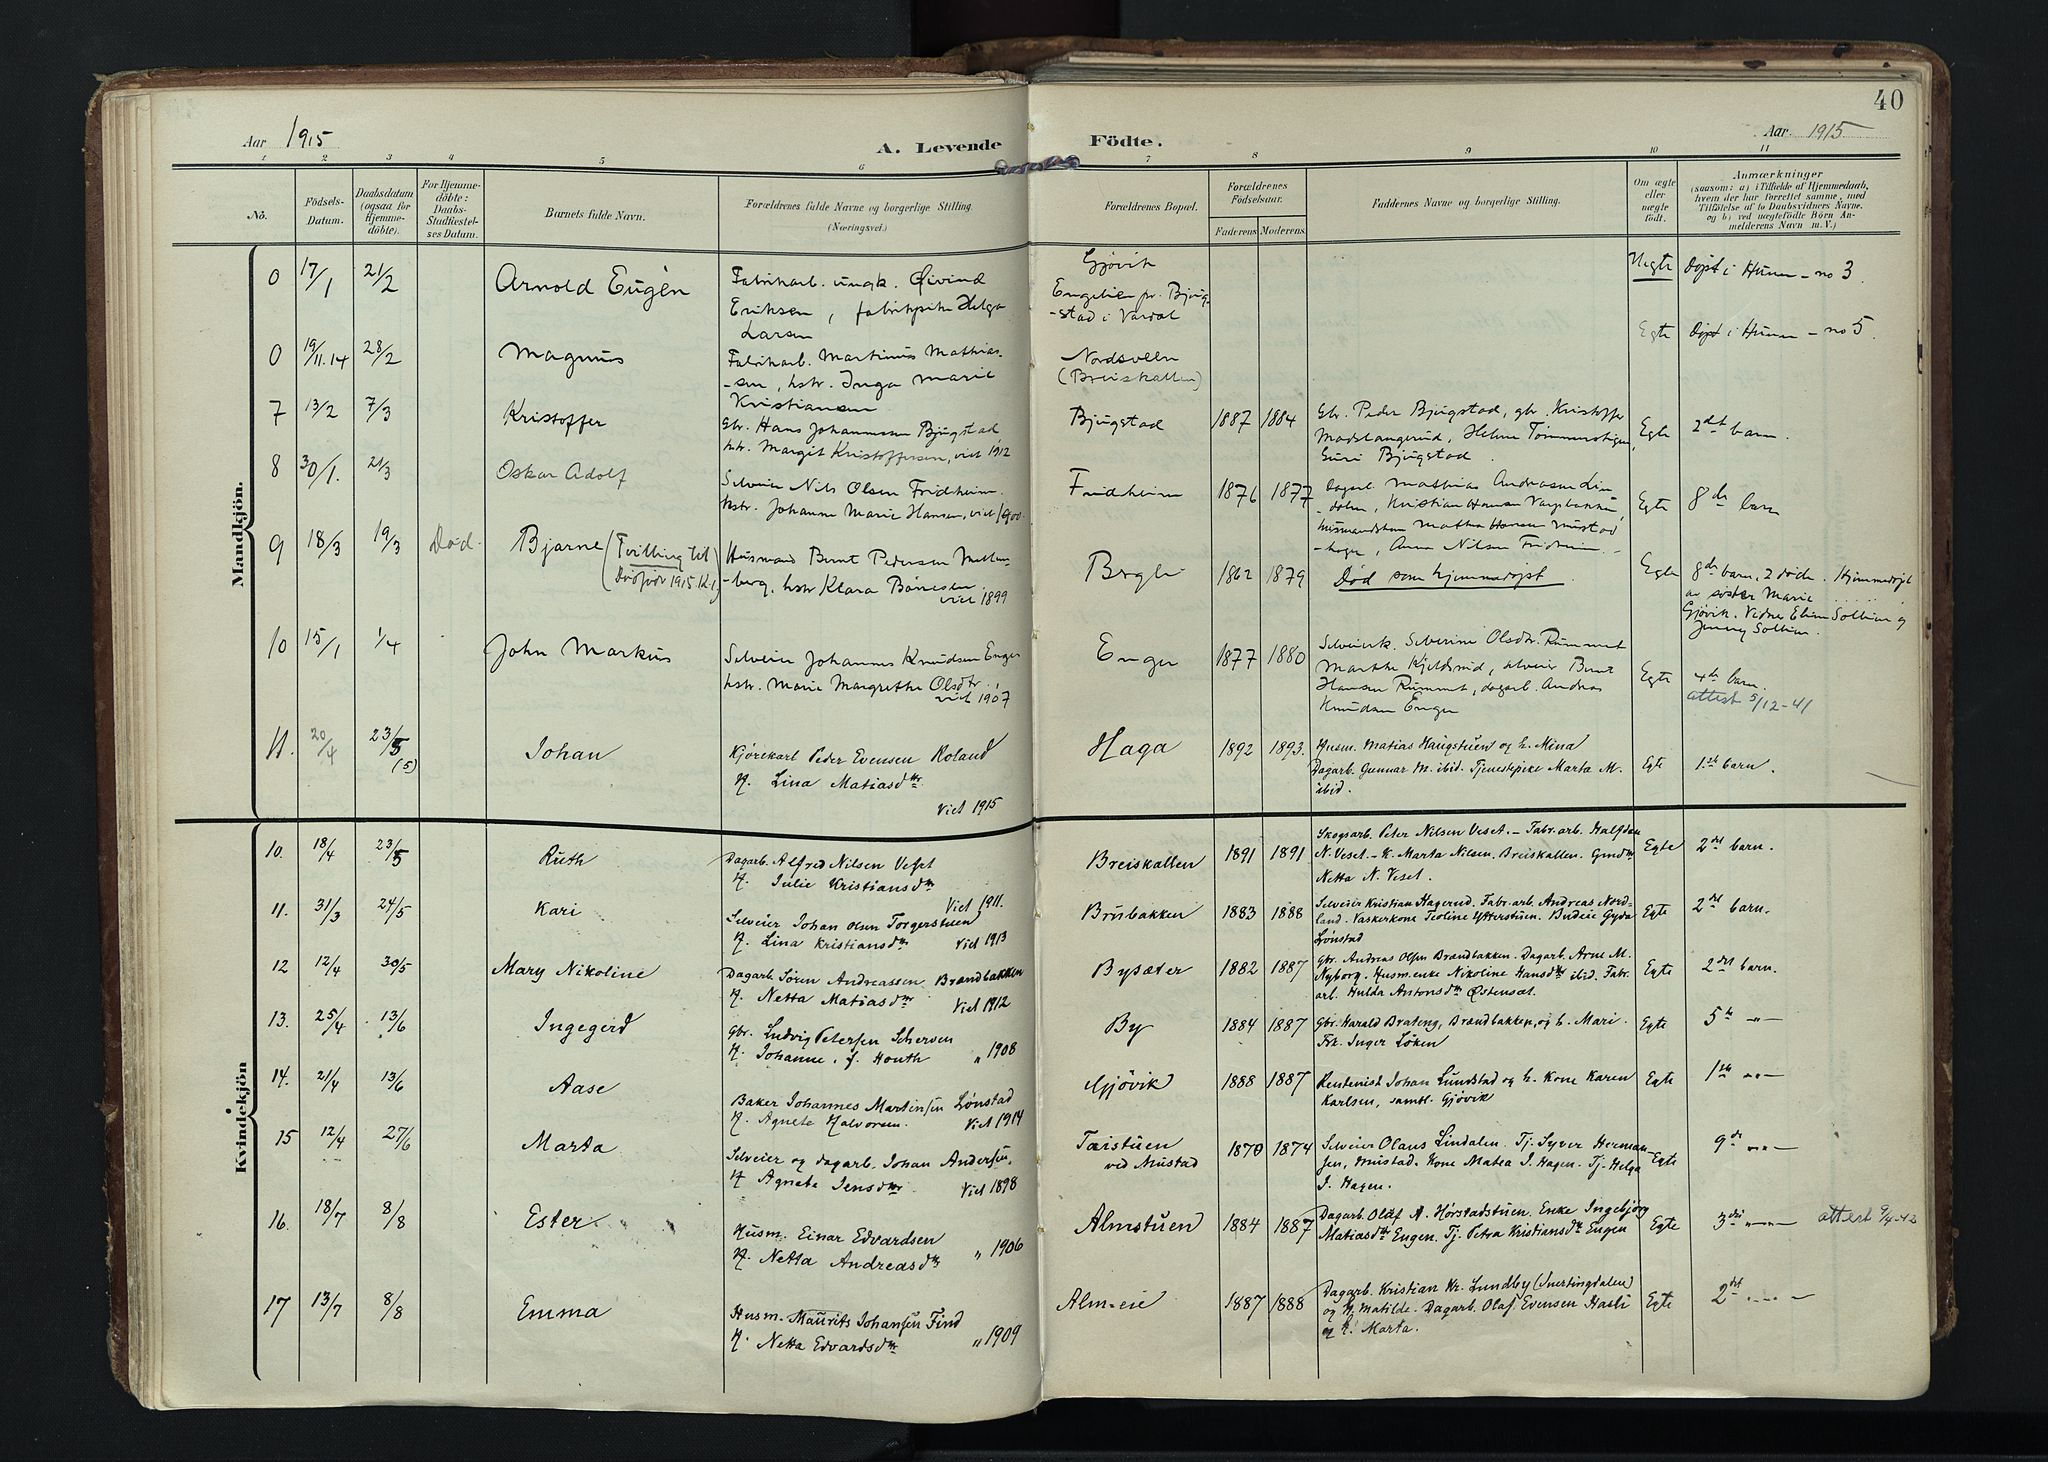 40
Aar 1915
A. Levende
Födte.
Aar 1915
1 2 3 4 5 6 7 8 9 10 11
No.
Födsels-
Datum.
Daabsdatum
(ogsaa for
Hjemme-
döbte).
For Hjemme-
döbte:
Daabs-
Stadfæstel-
ses Datum.
Barnets fulde Navn.
Forældrenes fulde Navne og borgerlige Stilling.
(Næringsvei.)
Forældrenes Bopæl.
Forældrenes
Födselsaar.
Faderens Moderens.
Faddernes Navne og borgerlige Stilling.
Om ægte
eller
uægte
födt.
Anmærkninger
(saasom: a) i Tilfælde af Hjemmedaab,
hvem der har forrettet samme, med
Tilföielse af to Daabsvidners Navne.
og b) ved uægtefödte Börn An-
melderens Navn m. V.)
Mandkjön.
0 17/1 21/2 Arnold Eugén
Fabrikarb. ungk. Øivind
Eriksen, fabrikpike Helga
Larsen
Gjövik
Engelien pr. Bjug-
-stad i Vardal
Uegte Døpt i Hunn - no 3
0 19/11.14 28/2 Magnus
Fabrikarb. Martinus Mathias-
-sen, hstr. Inga Marie
Kristiansen
Nordsveen
(Breiskallen)
Egte Døpt i Hunn - no 5
7 13/2 7/3 Kristoffer
Gbr. Hans Johannessen Bjugstad
hstr. Margit Kristoffersen, viet 1912
Bjugstad 1887 1884
Gbr. Peder Bjugstad, gbr. Kristoffer
Madslangerud, Helene Tømmerstigen,
Guri Bjugstad.
Egte 2det barn.
8 30/1. 21/3 Oskar Adolf
Selveier Nils Olsen Fridheim.
hstr. Johanne Marie Hansen, viet 1900.
Fridheim 1876 1877
Dagarb. Mathias Andreasen Lin-
-dalen, Kristian Hansen
husmandsten Mathea Hansen Mustad
-hagen, Anna Nilsen Fridheim.
Egte 8de barn
9 18/3 19/3 Død. Bjarne (Tvilling til
Dødfödt 1915 K.1)
Husmand Bernt Pedersen
-berg, hstr. Klara
viet 1899
1862 1879
Død som hjemmedøpt.
Egte 8de barn, 2 døde. Hjemmedøpt
av søster Marie
Gjövik. Vidner Elise Solheim og
Jenny Solheim.
10 15/1 1/4 John Markus
Selveier Johannes Knudsen Enger
hstr. Marie Margrethe Olsdtr.,
viet 1907
Enger 1877 1880
Selveierk. Severine Olsdtr. Rummet
Marthe Kjeldsrud, selveier Bernt
Hansen Rummet, dagarb. Andreas
Knudsen Enger
Egte 4de barn.
attest 5/12-41
11. 20/4 23/5 (5) Johan
Kjørekarl Peder Evensen Roland
H. Lina Matiasdtr
Viet 1915
Haga 1892 1893.
Husm. Matias Haugstuen og h. Mina
Dagarb. Gunnar M. ibid. Tjenestepike Marta M.
ibid.
Egte 1ste barn.
Kvindekjön
10. 18/4 23/5 Ruth
Dagarb. Alfred Nilsen Veset
H. Julie Kristiansdtr
Viet 1911.
Breiskallen 1891 1891
Skogsarb. Peter Nilsen Veset. - Fabr. arb. Halfdan
N. Veset. - K. Marta Nilsen. Breiskallen. Gmdtr
Netta N. Veset.
Egte 2det barn.
11. 31/3 24/5 Kari
Selveier Johan Olsen Torgerstuen
H. Lina Kristiansdtr Viet 1913
Brubakken 1883 1888
Selveier Kristian Hagerud. Fabr. arb. Andreas Nord-
land. Vaskerkone Teoline Ytterstuen. Budeie Gyda
Lønstad
Egte 2det barn.
12 12/4 30/5 Mary Nikoline
Dagarb. Søren Andreassen Brandbakken
H. Netta Matiasdtr Viet 1912
Bysæter 1882 1887
Gbr. Andreas Olsen Brandbakken. Dagarb. Arne M.
Nyborg. Husm. enke Nikoline Hansdtr ibid. Fabr.
arb. Hulda Antonsdtr Østensæt.
Egte 2det barn.
13. 25/4 13/6 Ingegerd
Gbr. Ludvig Petersen Scherven
H. Johanne, f. Houth " 1908
By 1884 1887
Gbr. Harald Brateng, Brandbakken, og h. Mari.
Frk. Inger Løken
Egte 5te "-
14. 21/4 13/6 Aase
Baker Johannes Martinsen Lønstad
H. Agnete Halvorsen. Viet 1914
Gjövik 1888 1887
Rentenist Johan Lundstad og h. Kone Karen
Karlsen, samtl. Gjövik
Egte 1ste "-
15 12/4 27/6 Marta
Selveier og dagarb. Johan Andersen,
H Agnete Jensdtr. Viet 1898
Taistuen
ved Mustad
1870 1874
Selveier Olaus Lindalen. Tj. Syver Herman-
sen, Mustad. Kone Matea I. Hagen. Tj. Helga
I. Hagen.
Egte 9de "-
16. 18/7 8/8 Ester
Husm. Einar Edvardsen
H. Netta Andreasdtr " 1906
Almstuen 1884 1887
Dagarb. Olaf A. Hørstadstuen. Enke Ingebjørg
Matiasdtr Engen. Tj. Petra Kristiansdtr Engen
Egte 3die "- attest 9/4-42
17 13/7 8/8 Emma
Husm. Maurits Johansen Find
H. Netta Edvardsdtr " 1909
Alm-eie 1887 1888
Dagarb. Kristian Kr. Lundby (Snertingdalen)
og h. Matilde. Dagarb. Olaf Evensen Hasli
og h. Marta.
Egte 2det "-